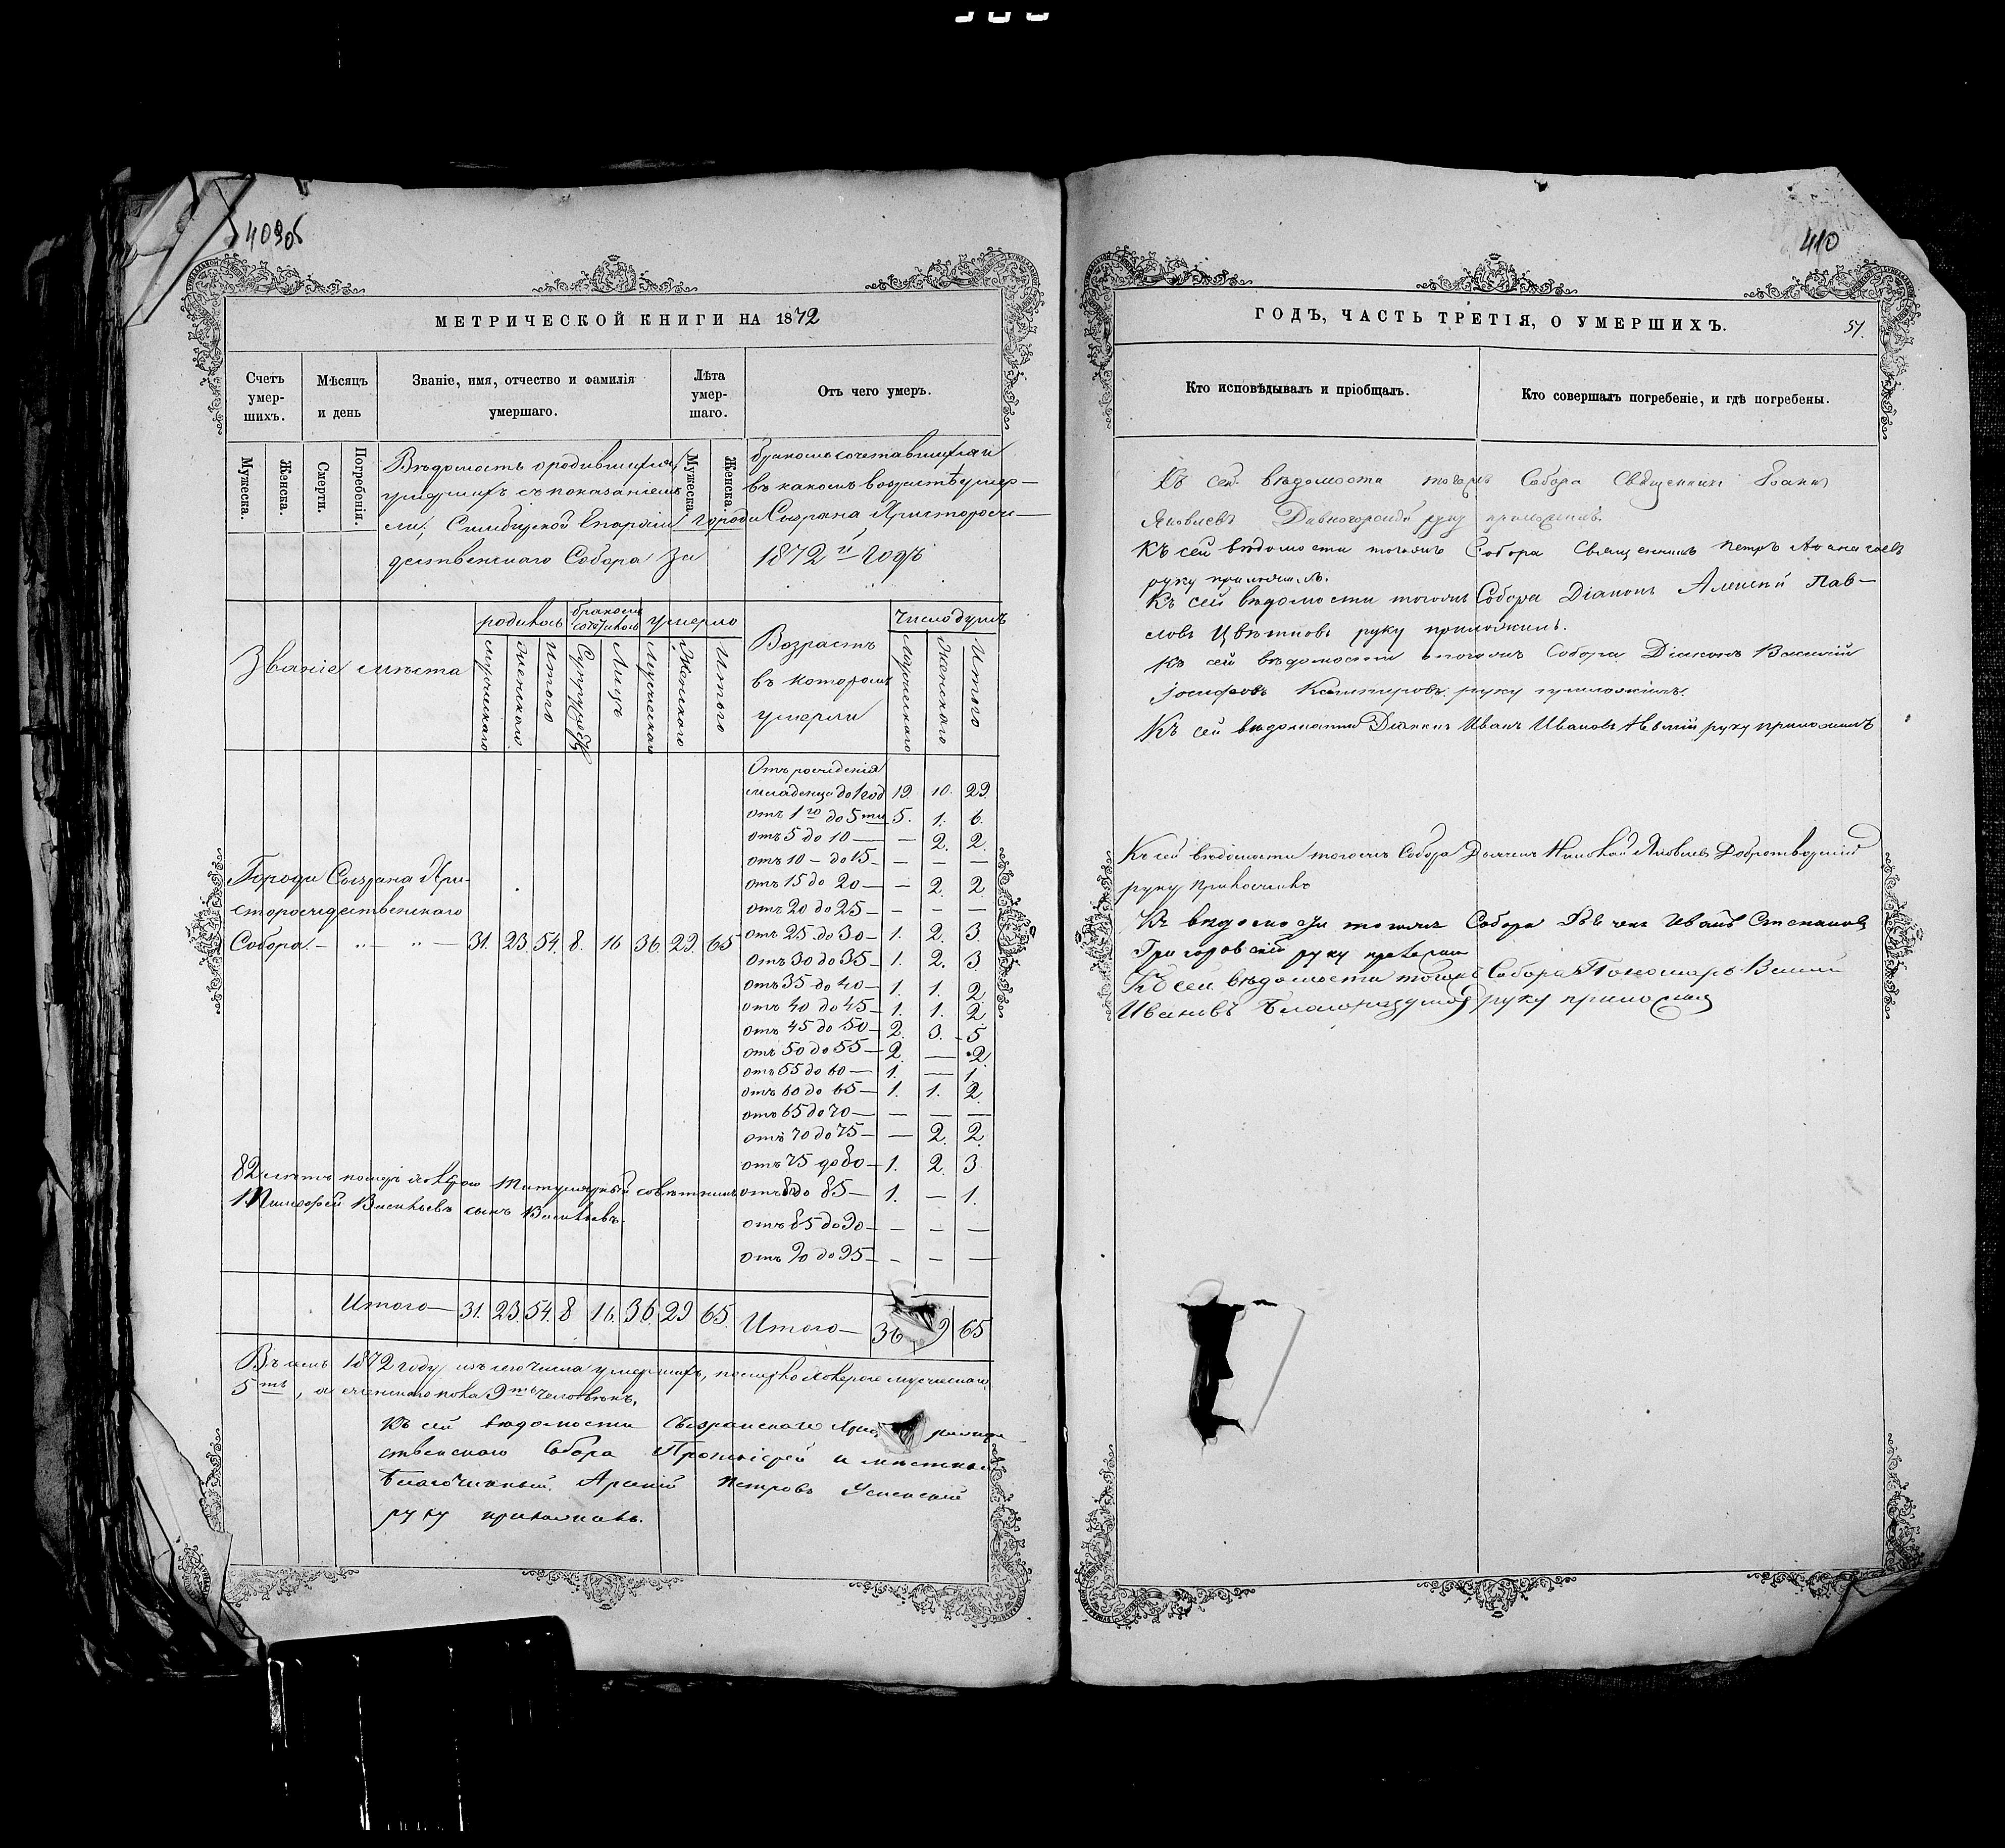 409об
МЕТРИЧЕСКОЙ КНИГИ НА 1872
Счетъ умер-шихъ.
Мѣсяцъ и день
Званіе, имя, отчество и фамилія умершаго.
Лѣта умер-шаго.
Отъ чего умеръ.
Мужеска.
Женска.
Смерти.
Погребенія.
Мужеска.
Женска.
Вѣдомость о родившихся, бракомъ сочетавшихся и
умершихъ съ показаніемъ въ какомъ возрастѣ умер-
ли, Симбирской Епархіи города Сызрана Христорож-
дественскаго Собора за 1872 й годъ
Званіе мѣста
родилось
бракомъ сочеталось
умерло
Возрастъ въ которомъ умерли
Число душъ
Мужескаго
Женскаго
Итого
Супружествъ
Лицъ
Мужескаго
Женскаго
Итого
Мужескаго
Женскаго
Итого
Отъ рожденія
младенца до 1 год 19. 10. 29.
отъ 1го до 5ти 5. 1. 6.
отъ 5 до 10 — — 2. 2.
отъ 10 — до 15 — — — —
отъ 15 до 20 — — 2. 2
отъ 20 до 25 — — — —
отъ 25 до 30 — 1. 2. 3.
отъ 30 до 35 — 1. 2. 3
отъ 35 до 40 — 1. 1. 2
отъ 40 до 45 — 1. 1. 2
отъ 45 до 50 — 2. 3. 5
отъ 50 до 55 — 2. — 2
отъ 55 до 60 — 1. — 1.
отъ 60 до 65 — 1. 1. 2.
отъ 65 до 70 — — — —
отъ 70 до 75 — — 2. 2.
отъ 75 до 80 — 1. 2. 3
отъ 80 до 85 — 1. — 1.
отъ 85 до 90 — — — —
отъ 90 до 95 — — — —
Города Сызрана Хри-
сторождественскаго
Собора. — „ — „ — 31. 23. 54. 8. 16 36. 29. 65
82 лѣтъ померъ холерою титулярный совѣтникъ
Тимофей Васильевъ сынъ Васильевъ.
Итого — 31. 23. 54. 8 16. 36. 29 65.
Итого — 36 9 65
Въ семъ 1872 году изъ сего числа умершихъ, померло холерою мужескаго
5ть, а женскаго пола 9ть человѣкъ.
Къ сей вѣдомости Сызранскаго
ственскаго Собора Протоіерей и мѣстный
Благочинный Арсеній Петровъ Успенскій
руку приложилъ.
410
ГОДЪ, ЧАСТЬ ТРЕТІЯ, О УМЕРШИХЪ.
51.
Кто исповѣдывалъ и пріобщалъ.
Кто совершалъ погребеніе, и гдѣ погребены.
Къ сей вѣдомости тогожъ Собора Священникъ Іоаннъ
Яковлевъ Дивногорскій руку приложилъ.
Къ сей вѣдомости тогожъ Собора Священникъ Петръ
руку приложилъ.
Къ сей вѣдомости тогожъ Собора Діаконъ Алексій Пав-
ловъ Цвѣтковъ руку приложилъ.
Къ сей вѣдомости тогожъ Собора Діаконъ Василій
Іосифовъ руку приложилъ.
Къ сей вѣдомости Діаконъ Иванъ Ивановъ руку приложилъ
Къ сей вѣдомости тогожъ Собора Дьячекъ Николай Яковлевъ Добротворскій
руку приложилъ
Къ вѣдомости тогожъ Собора Дьячекъ Иванъ Степановъ
Григоровскій руку
Къ сей вѣдомости тогожъ Собора Пономарь
Ивановъ Благонадумовъ руку приложилъ